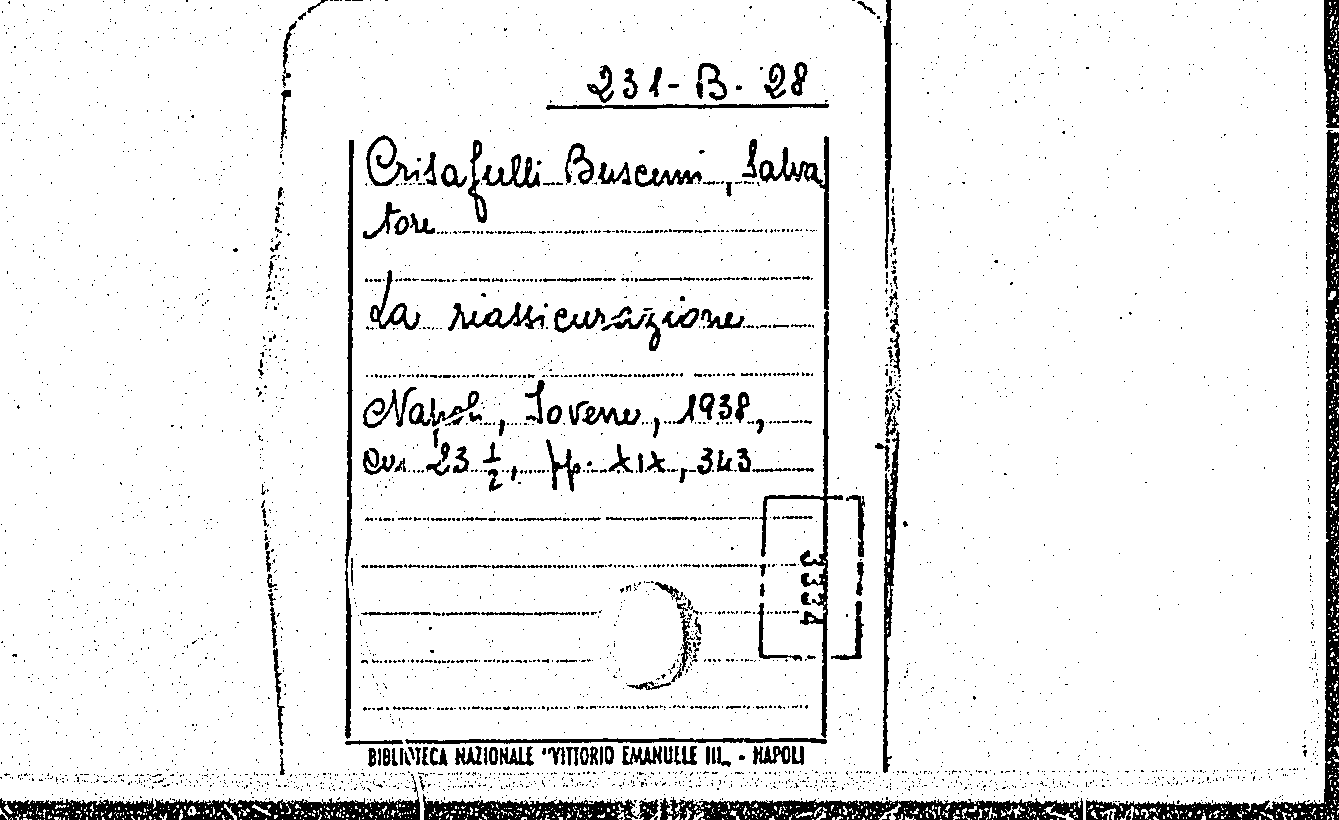 231-B. 28
Crisafulli Buscemi, Salva
tore
La riassicurazione
Napoli, Jovene, 1938,
cm 23 1/2, pp. XIX, 343
3334
BIBLIOTECA NAZIONALE "VITTORIO EMANUELE III„ - NAPOLI